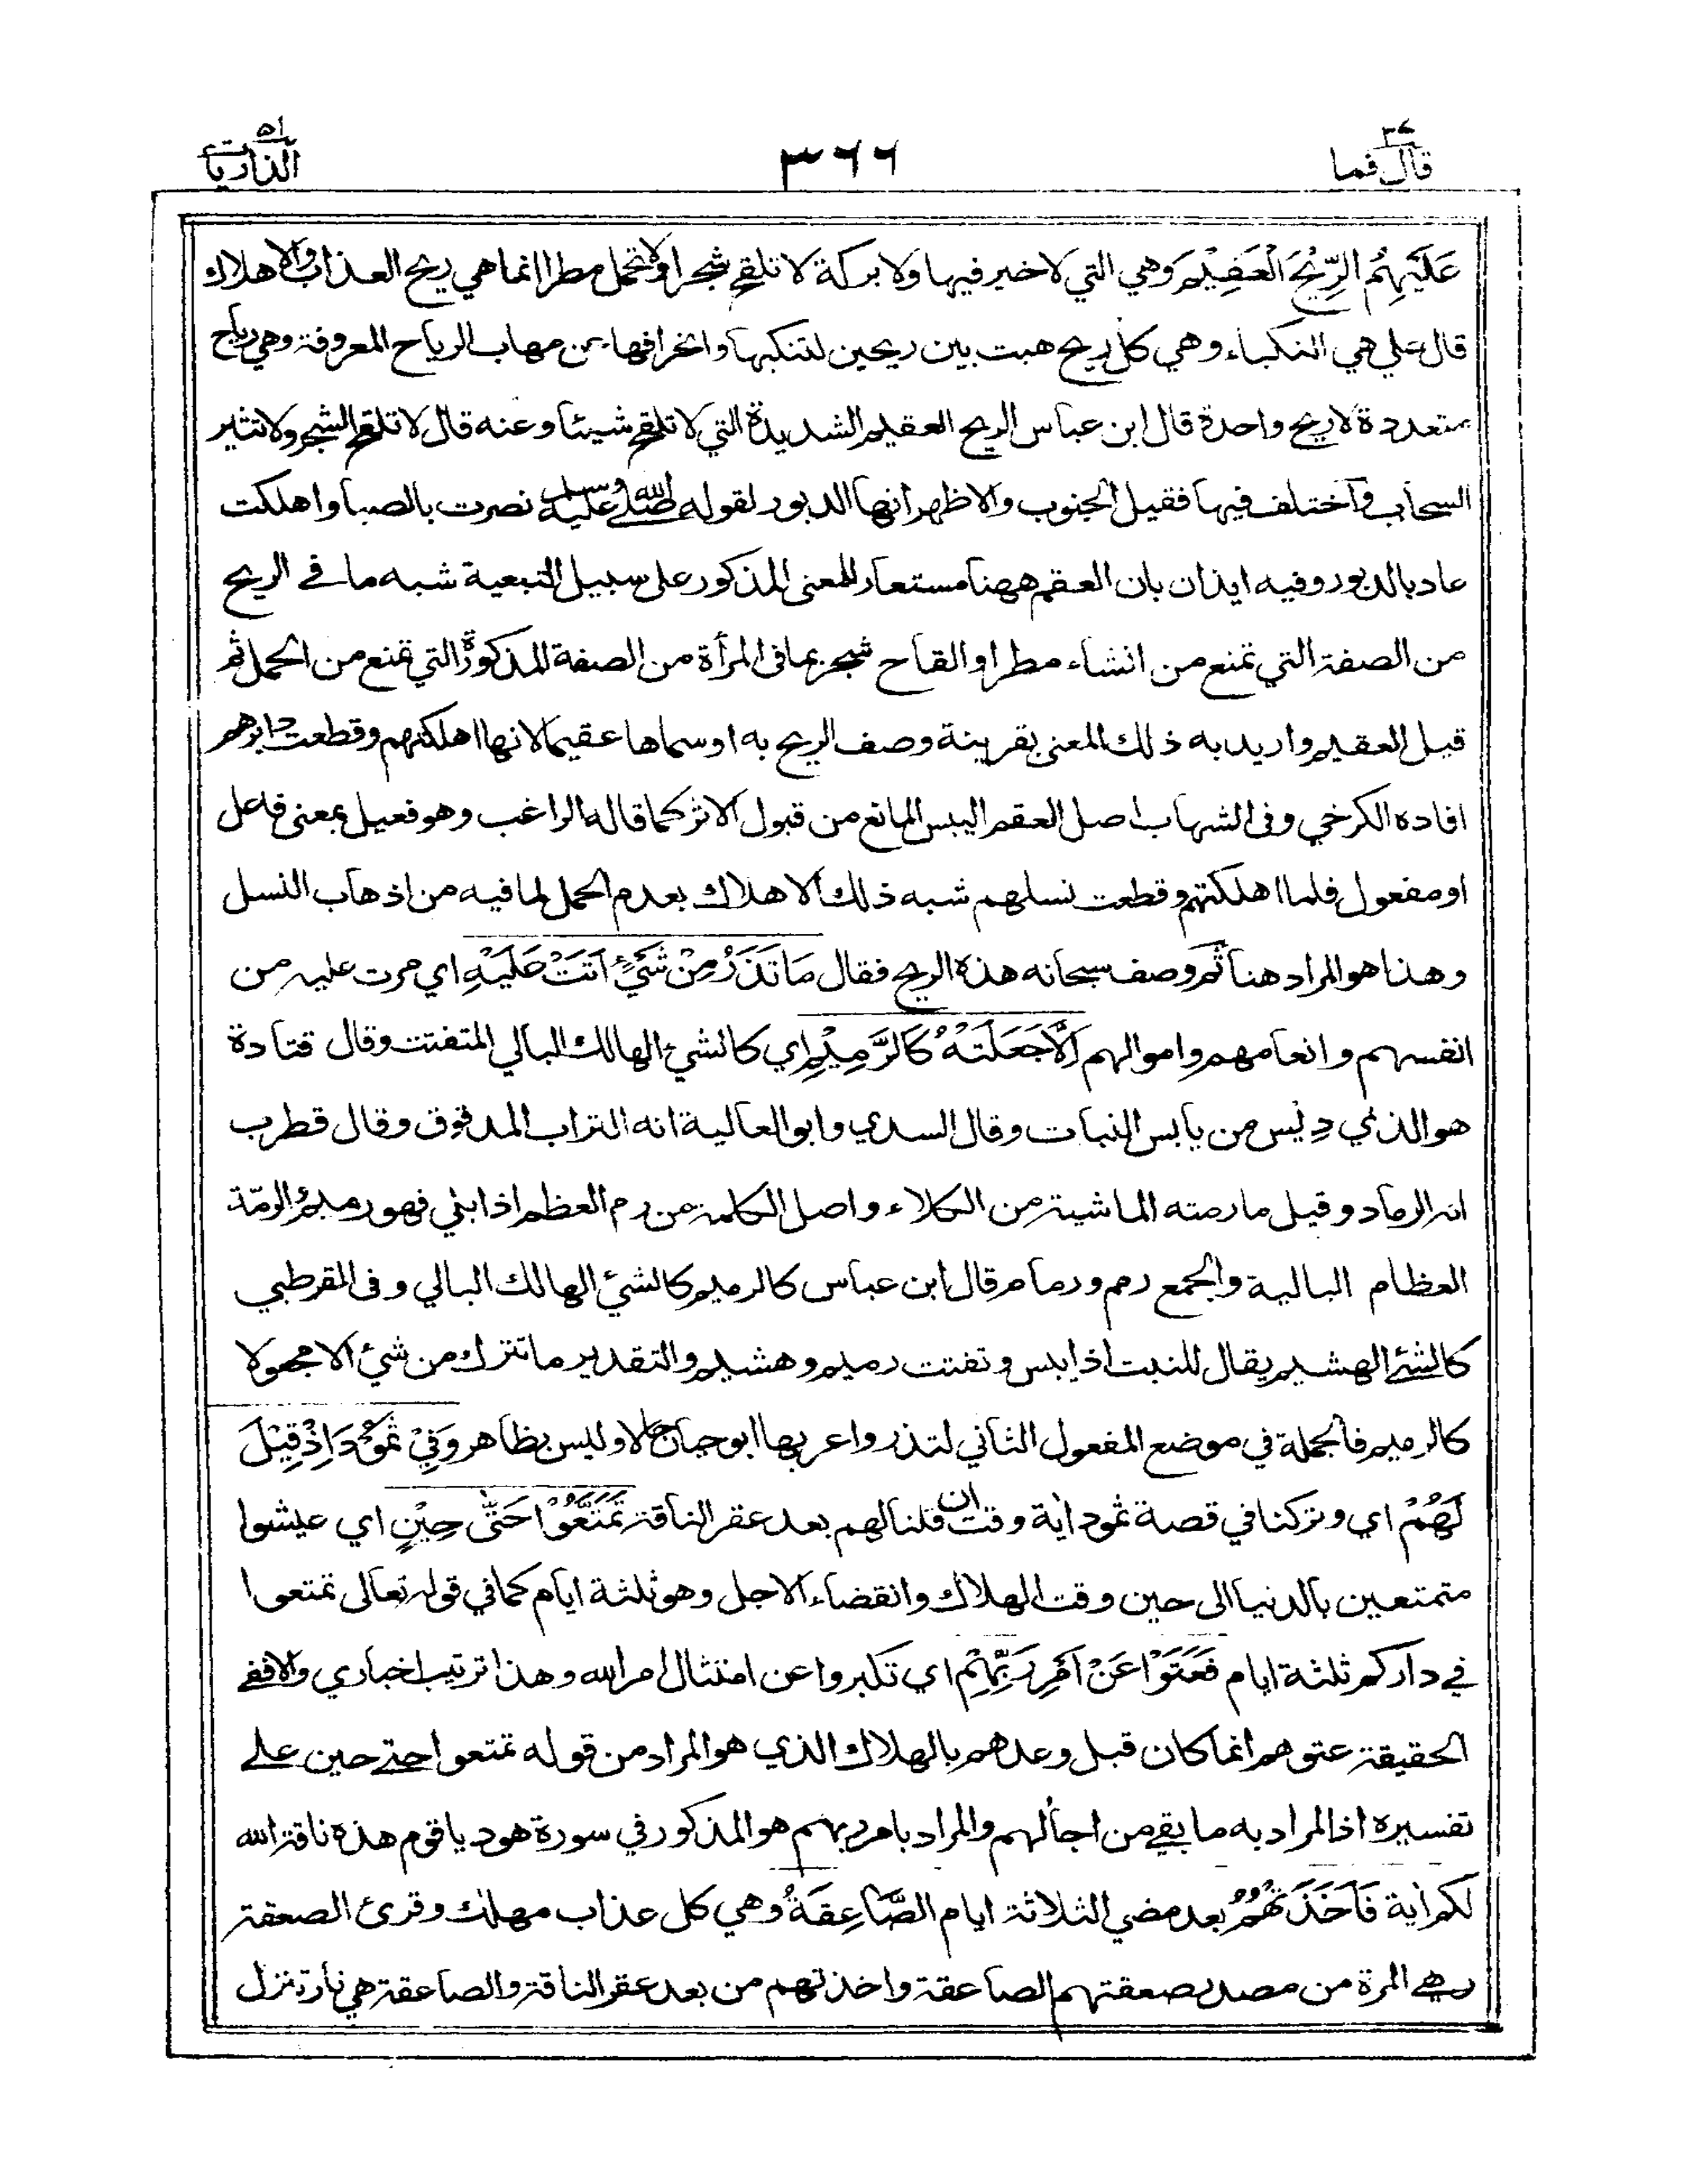 قال فما ٢٧
٣٦٦
الذاريات ٥١
عَلَيْهِمُ الرِّيْحَ الْعَقِيْمَ وهي التي لا خير فيها ولا بركة لا تلقح شجرا ولا تحمل مطرا انما هي ريح العذاب والاهلاك
قال علي هي النكباء وهي كل ريح هبت بين ريحين لتنكبها وانحرافها عن مهاب الرياح المعروفة وهي رياح
متعددة لا ريح واحدة قال ابن عباس الريح العقيم الشديدة التي لا تلقح شيئا وعنه قال لا تلقح الشجر ولا تثير
السحاب وآختلف فيها فقيل الجنوب والاظهر انها الدبور لقوله صلى الله عليه وسلم نصرت بالصبا واهلكت
عاد بالدبور وفيه ايذان بان العقم ههنا مستعار للمعنى المذكور على سبيل التبعية شبه ما في الريح
من الصفة التي تمنع من انشاء مطر او القاح شجر بما في المرأة من الصفة المذكورة التي تمنع من الحمل ثم
قيل العقيم واريد به ذلك المعنى بقرينة وصف الريح به او سماها عقيما لانها اهلكتهم وقطعت دابرهم
افاده الكرخي وفى الشهاب اصل العقم اليبس المانع من قبول الاثر كما قاله الراغب وهو فعيل بمعنى فاعل
او مفعول فلما اهلكتهم وقطعت نسلهم شبه ذلك الاهلاك بعدم الحمل لما فيه من اذهاب النسل
وهذا هو المراد هنا ثم وصف سبحانه هذه الريح فقال مَا تَذَرُ مِنْ شَيْءٍ اَتَتْ عَلَيْهِ اي مرت عليه من
انفسهم وانعامهم واموالهم اِلَّا جَعَلَتْهُ كَالرَّمِيْمِ اي كالشيء الهالك البالي المتفتت وقال قتادة
هو الذي دِيْس من يابس النبات وقال السدي وابو العالية انه التراب المدقوق وقال قطرب
انه الرماد وقيل ما رمته الماشية من الكلاء واصل الكلمة من رم العظم اذا بلي فهو رميم والرمّة
العظام البالية والجمع رمم ورمام قال ابن عباس كالرميم كالشيء الهالك البالي وفى القرطبي
كالشئ الهشيم يقال للنبت اذا يبس وتفتت رميم وهشيم والتقدير ما تترك من شيء الا مجعولا
كالرميم فالجملة في موضع المفعول الثاني لتذر واعربها ابو حيان حالا وليس بظاهر وَفِيْ ثَمُوْدَ اِذْ قِيْلَ
لَهُمْ اي وتركنا في قصة ثمود اٰية وقت ان قلنا لهم بعد عقر الناقة تَمَتَّعُوْا حَتّٰى حِيْنٍ اي عيشوا
متمتعين بالدنيا الى حين وقت الهلاك وانقضاء الاجل وهو ثلثة ايام كما في قوله تعالى تمتعوا
في داركم ثلثة ايام فَعَتَوْا عَنْ اَمْرِ رَبِّهِمْ اي تكبروا عن امتثال امر الله وهذا ترتيب اخباري والا ففي
الحقيقة عتوهم انما كان قبل وعدهم بالهلاك الذي هو المراد من قوله تمتعوا حتى حين على
تفسيره اذ المراد به ما بقي من اجالهم والمراد بامر ربهم هو المذكور في سورة هود يا قوم هذه ناقة الله
لكم اٰية فَاَخَذَتْهُمُ بعد مضي الثلاثة ايام الصَّاعِقَةُ وهي كل عذاب مهلك وقرئ الصعقة
وهي المرة من مصدر صعقتهم الصاعقة واخذتهم من بعد عقر الناقة والصاعقة هي نار تنزل